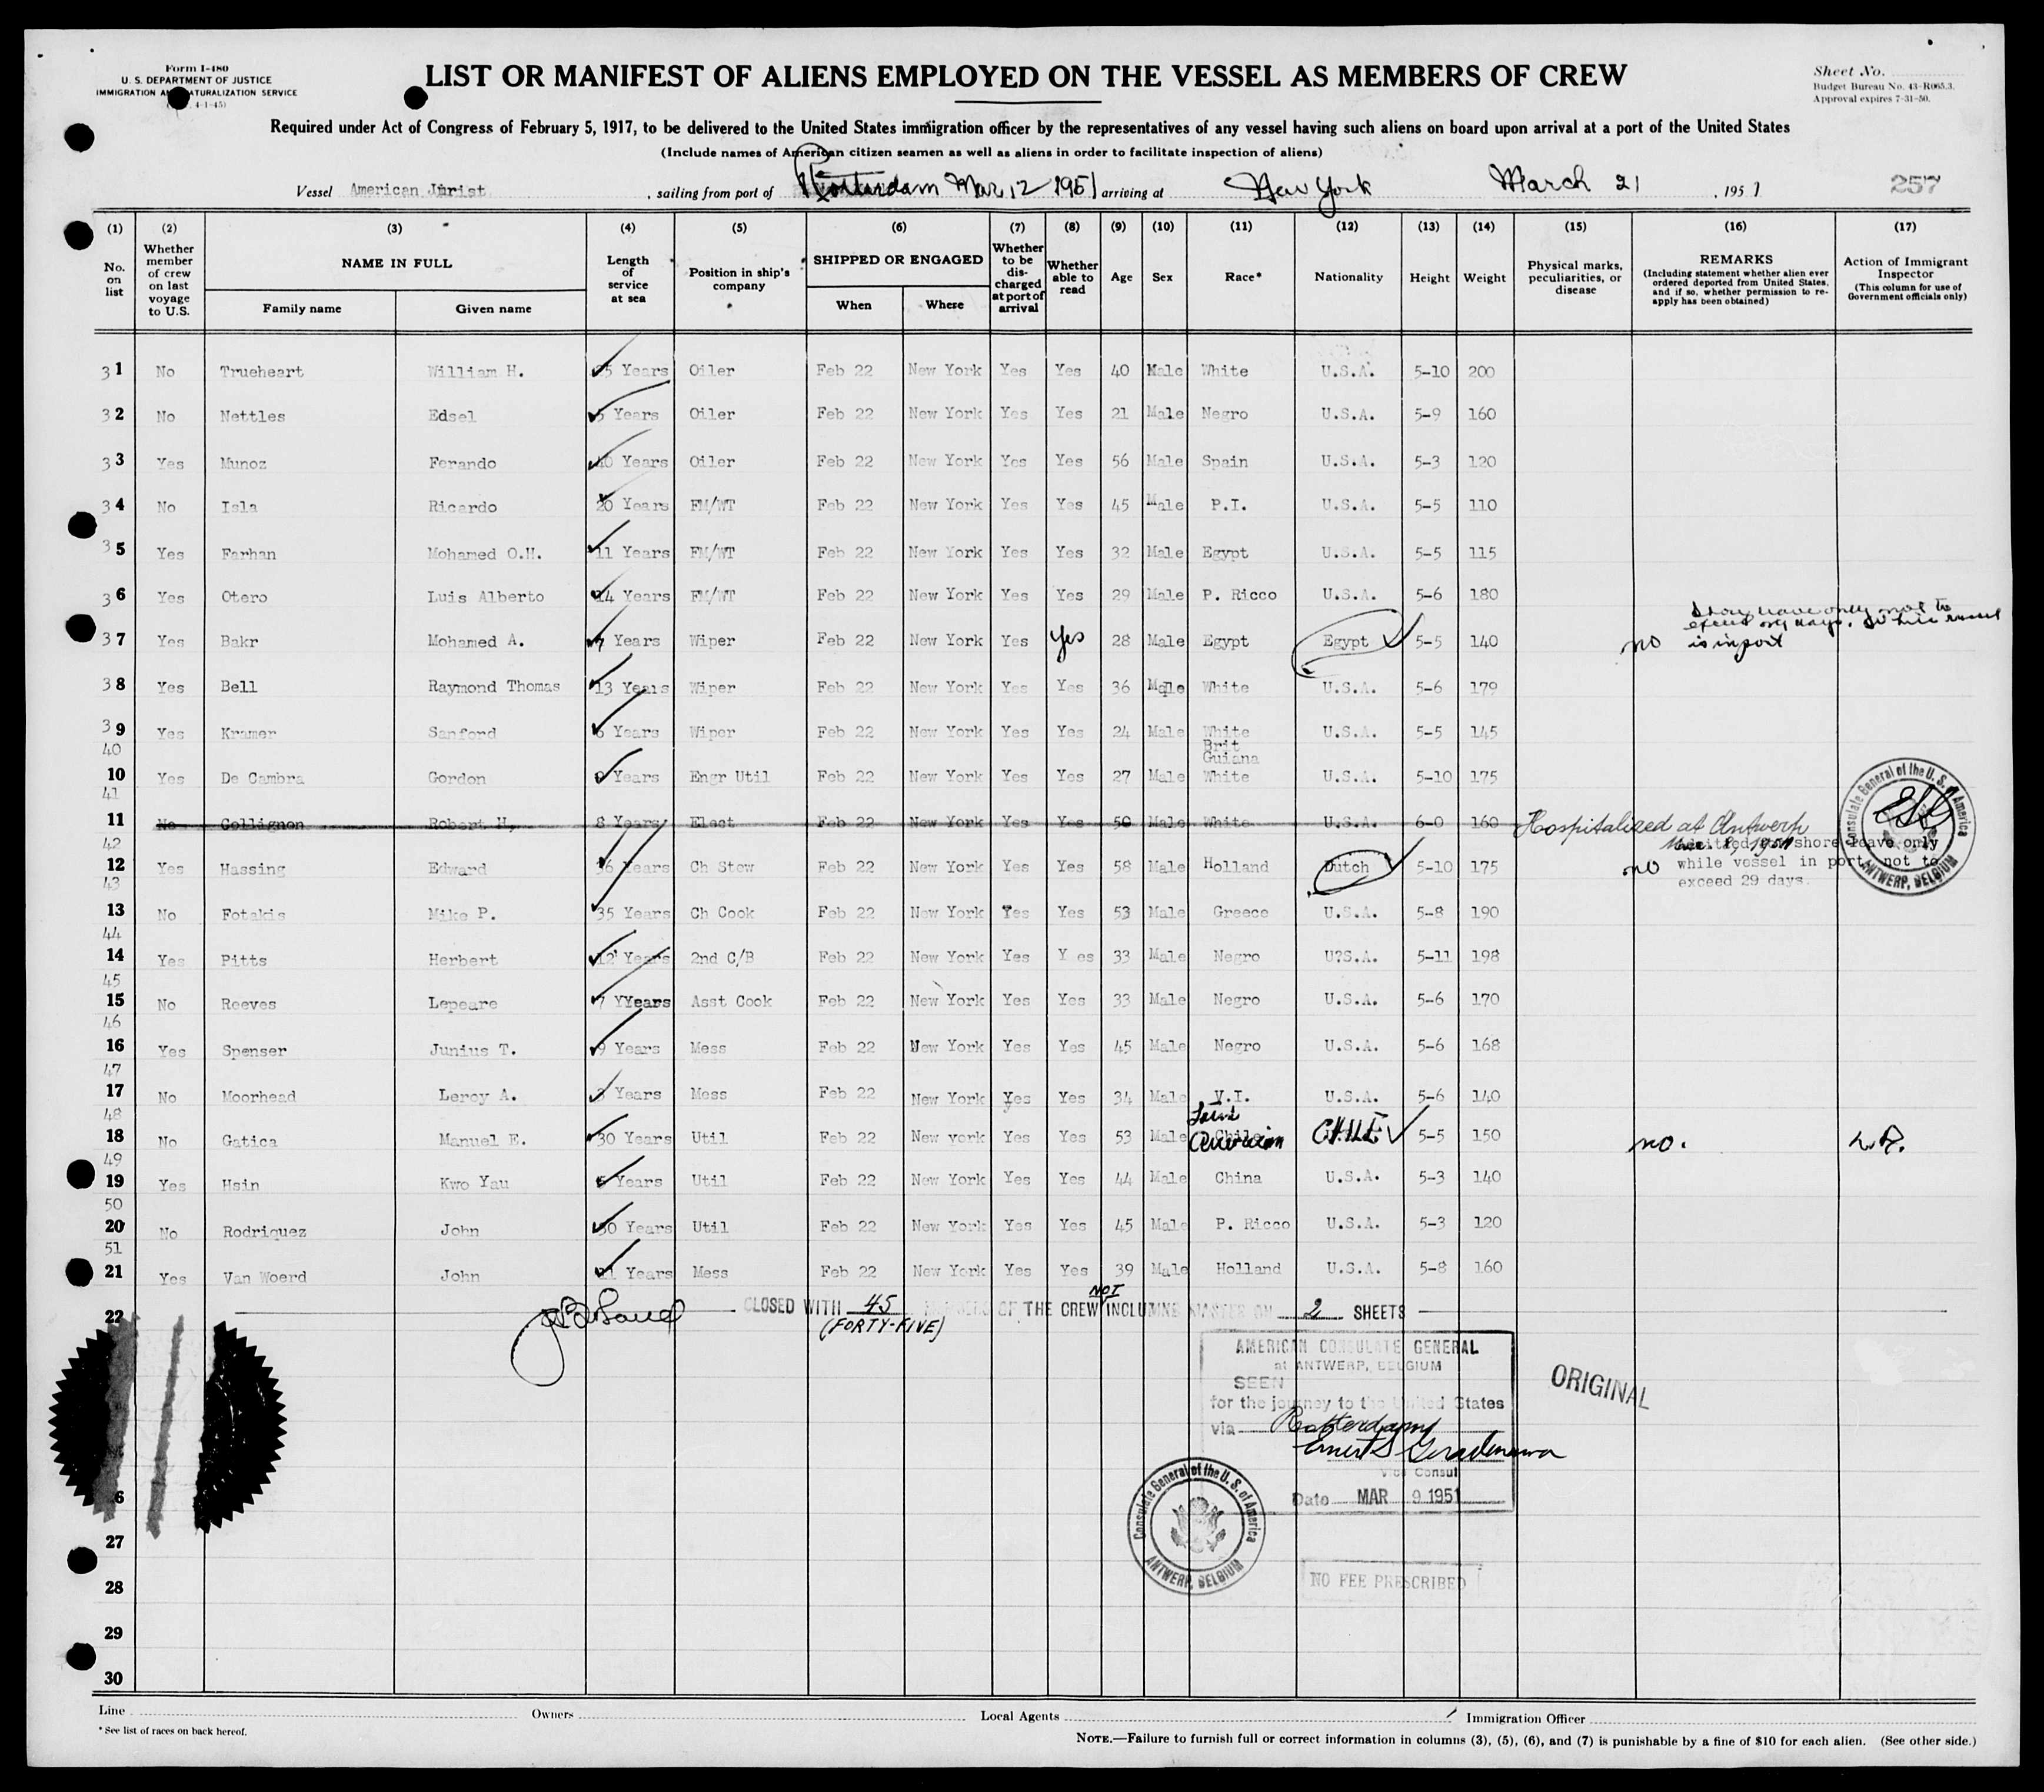 Form I-480
U. S. DEPARTMENT OF JUSTICE
IMMIGRATION AND NATURALIZATION SERVICE
4-1-45)
LIST OR MANIFEST OF ALIENS EMPLOYED ON THE VESSEL AS MEMBERS OF CREW
Sheet No.
Budget Bureau No. 43-R065.3.
Approval expires 7-31-50.
Required under Act of Congress of February 5, 1917, to be delivered to the United States immigration officer by the representatives of any vessel having such aliens on board upon arrival at a port of the United States
(Include names of American citizen seamen as well as aliens in order to facilitate inspection of aliens)
Vessel American Jurist, sailing from port of Rotterdam Mar, 12 1951 arriving at New York March 21, 1951 257
(1) (2) (3) (4) (5) (6) (7) (8) (9) (10) (11) (12) (13) (14) (15) (16) (17)
No. on list
Whether member of crew on last voyage to U.S.
NAME IN FULL
Family name
Given name
Length of service at sea
Position in ship's company
SHIPPED OR ENGAGED
When
Where
Whether to be discharged at port of arrival
Whether able to read
Age
Sex
Race*
Nationality
Height
Weight
Physical marks, peculiarities, or disease
REMARKS
(Including statement whether alien ever ordered deported from United States, and if so, whether permission to reapply has been obtained)
Action of Immigrant Inspector
(This column for use of Government officials only)
31 No Trueheart William H. 25 Years Oiler Feb 22 New York Yes Yes 40 Male White U.S.A. 5-10 200
32 No Nettles Edsel 5 Years Oiler Feb 22 New York Yes Yes 21 Male Negro U.S.A. 5-9 160
33 Yes Munoz Ferando 40 Years Oiler Feb 22 New York Yes Yes 56 Male Spain U.S.A. 5-3 120
34 No Isla Ricardo 20 Years FM/WT Feb 22 New York Yes Yes 45 Male P.I. U.S.A. 5-5 110
35 Yes Farhan Mohamed O.H. 11 Years FM/WT Feb 22 New York Yes Yes 32 Male Egypt U.S.A. 5-5 115
36 Yes Otero Luis Alberto 14 Years FM/WT Feb 22 New York Yes Yes 29 Male P. Ricco U.S.A. 5-6 180
Shore leave only not to
exceed 29 days.
37 Yes Bakr Mohamed A. 7 Years Wiper Feb 22 New York Yes Yes 28 Male Egypt Egypt 5-5 140 no is in port
38 Yes Bell Raymond Thomas 13 Years Wiper Feb 22 New York Yes Yes 36 Male White U.S.A. 5-6 179
39 Yes Kramer Sanford 6 Years Wiper Feb 22 New York Yes Yes 24 Male White U.S.A. 5-5 145
40
Brit
Guiana
10 Yes De Cambra Gordon 9 Years Engr Util Feb 22 New York Yes Yes 27 Male White U.S.A. 5-10 175
41
11 No Collignon Robert H, 8 Years Elect Feb 22 New York Yes Yes 50 Male White U.S.A. 6-0 160 Hospitalized at Antwerp
42
shore leave only
12 Yes Hassing Edward 36 Years Ch Stew Feb 22 New York Yes Yes 58 Male Holland Dutch 5-10 175 no while vessel in port, not to
43
exceed 29 days.
13 No Fotakis Mike P. 35 Years Ch Cook Feb 22 New York Yes Yes 53 Male Greece U.S.A. 5-8 190
44
14 Yes Pitts Herbert 12 Years 2nd C/B Feb 22 New York Yes Y es 33 Male Negro U?S.A. 5-11 198
45
15 No Reeves Lepeare 7 YYears Asst Cook Feb 22 New York Yes Yes 33 Male Negro U.S.A. 5-6 170
46
16 Yes Spenser Junius T. 9 Years Mess Feb 22 New York Yes Yes 45 Male Negro U.S.A. 5-6 168
47
17 No Moorhead Leroy A. 3 Years Mess Feb 22 New York Yes Yes 34 Male V.I. U.S.A. 5-6 140
48
18 No Gatica Manuel E. 30 Years Util Feb 22 New york Yes Yes 53 Male Latin American CHILE 5-5 150 no. L.R.
49
19 Yes Hsin Kwo Yau 5 Years Util Feb 22 New York Yes Yes 44 Male China U.S.A. 5-3 140
50
20 No Rodriquez John 30 Years Util Feb 22 New York Yes Yes 45 Male P. Ricco U.S.A. 5-3 120
51
21 Yes Van Woerd John 21 Years Mess Feb 22 New York Yes Yes 39 Male Holland U.S.A. 5-8 160
22 CLOSED WITH 45 MEMBERS OF THE CREW NOT INCLUMNE MASTER ON 2 SHEETS
(FORTY-FIVE)
AMERICAN CONSULATE GENERAL
at ANTWERP, BELGIUM
SEEN
for the journey to the United States
via Rotterdam
Vice Consul
Date MAR 9 1951
ORIGINAL
Consulate General of the U. S. of America
ANTWERP, BELGIUM
Consulate General of the U. S. of America
ANTWERP, BELGIUM
NO FEE PRESCRIBED
6
27
28
29
30
Line Owners Local Agents Immigration Officer
* See list of races on back hereof.
NOTE.—Failure to furnish full or correct information in columns (3), (5), (6), and (7) is punishable by a fine of $10 for each alien. (See other side.)